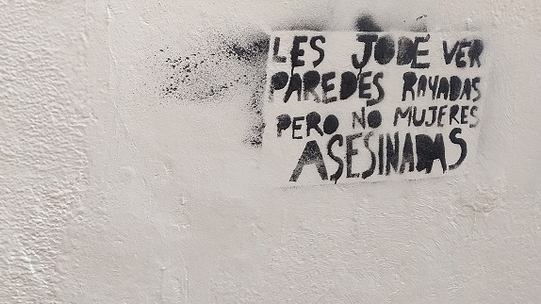 LES JODE VER
PAREDES RAYADAS
PERO NO MUJERES
ASESINADAS